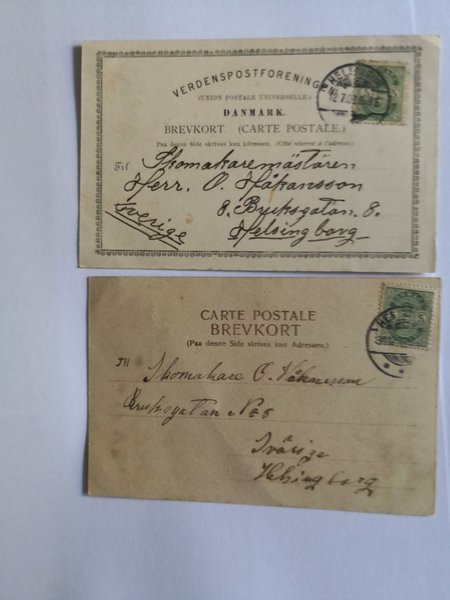 VERDENSPOSTFORENINGEN
(UNION POSTALE UNIVERSELLE.)
DANMARK.
BREVKORT. (CARTE POSTALE.)
Paa denne Side skrives kun Adressen. (Côté réservé à l'adresse.)
Til Skomakaremästären
Herr. O. Håkansson
8. Bruksgatan. 8.
Helsingborg
Sverige
CARTE POSTALE
BREVKORT
(Paa denne Side skrives kun Adressen.)
Til Skomakare O. Håkansson
Bruksgatan No 8
Svärige
Helsingborg